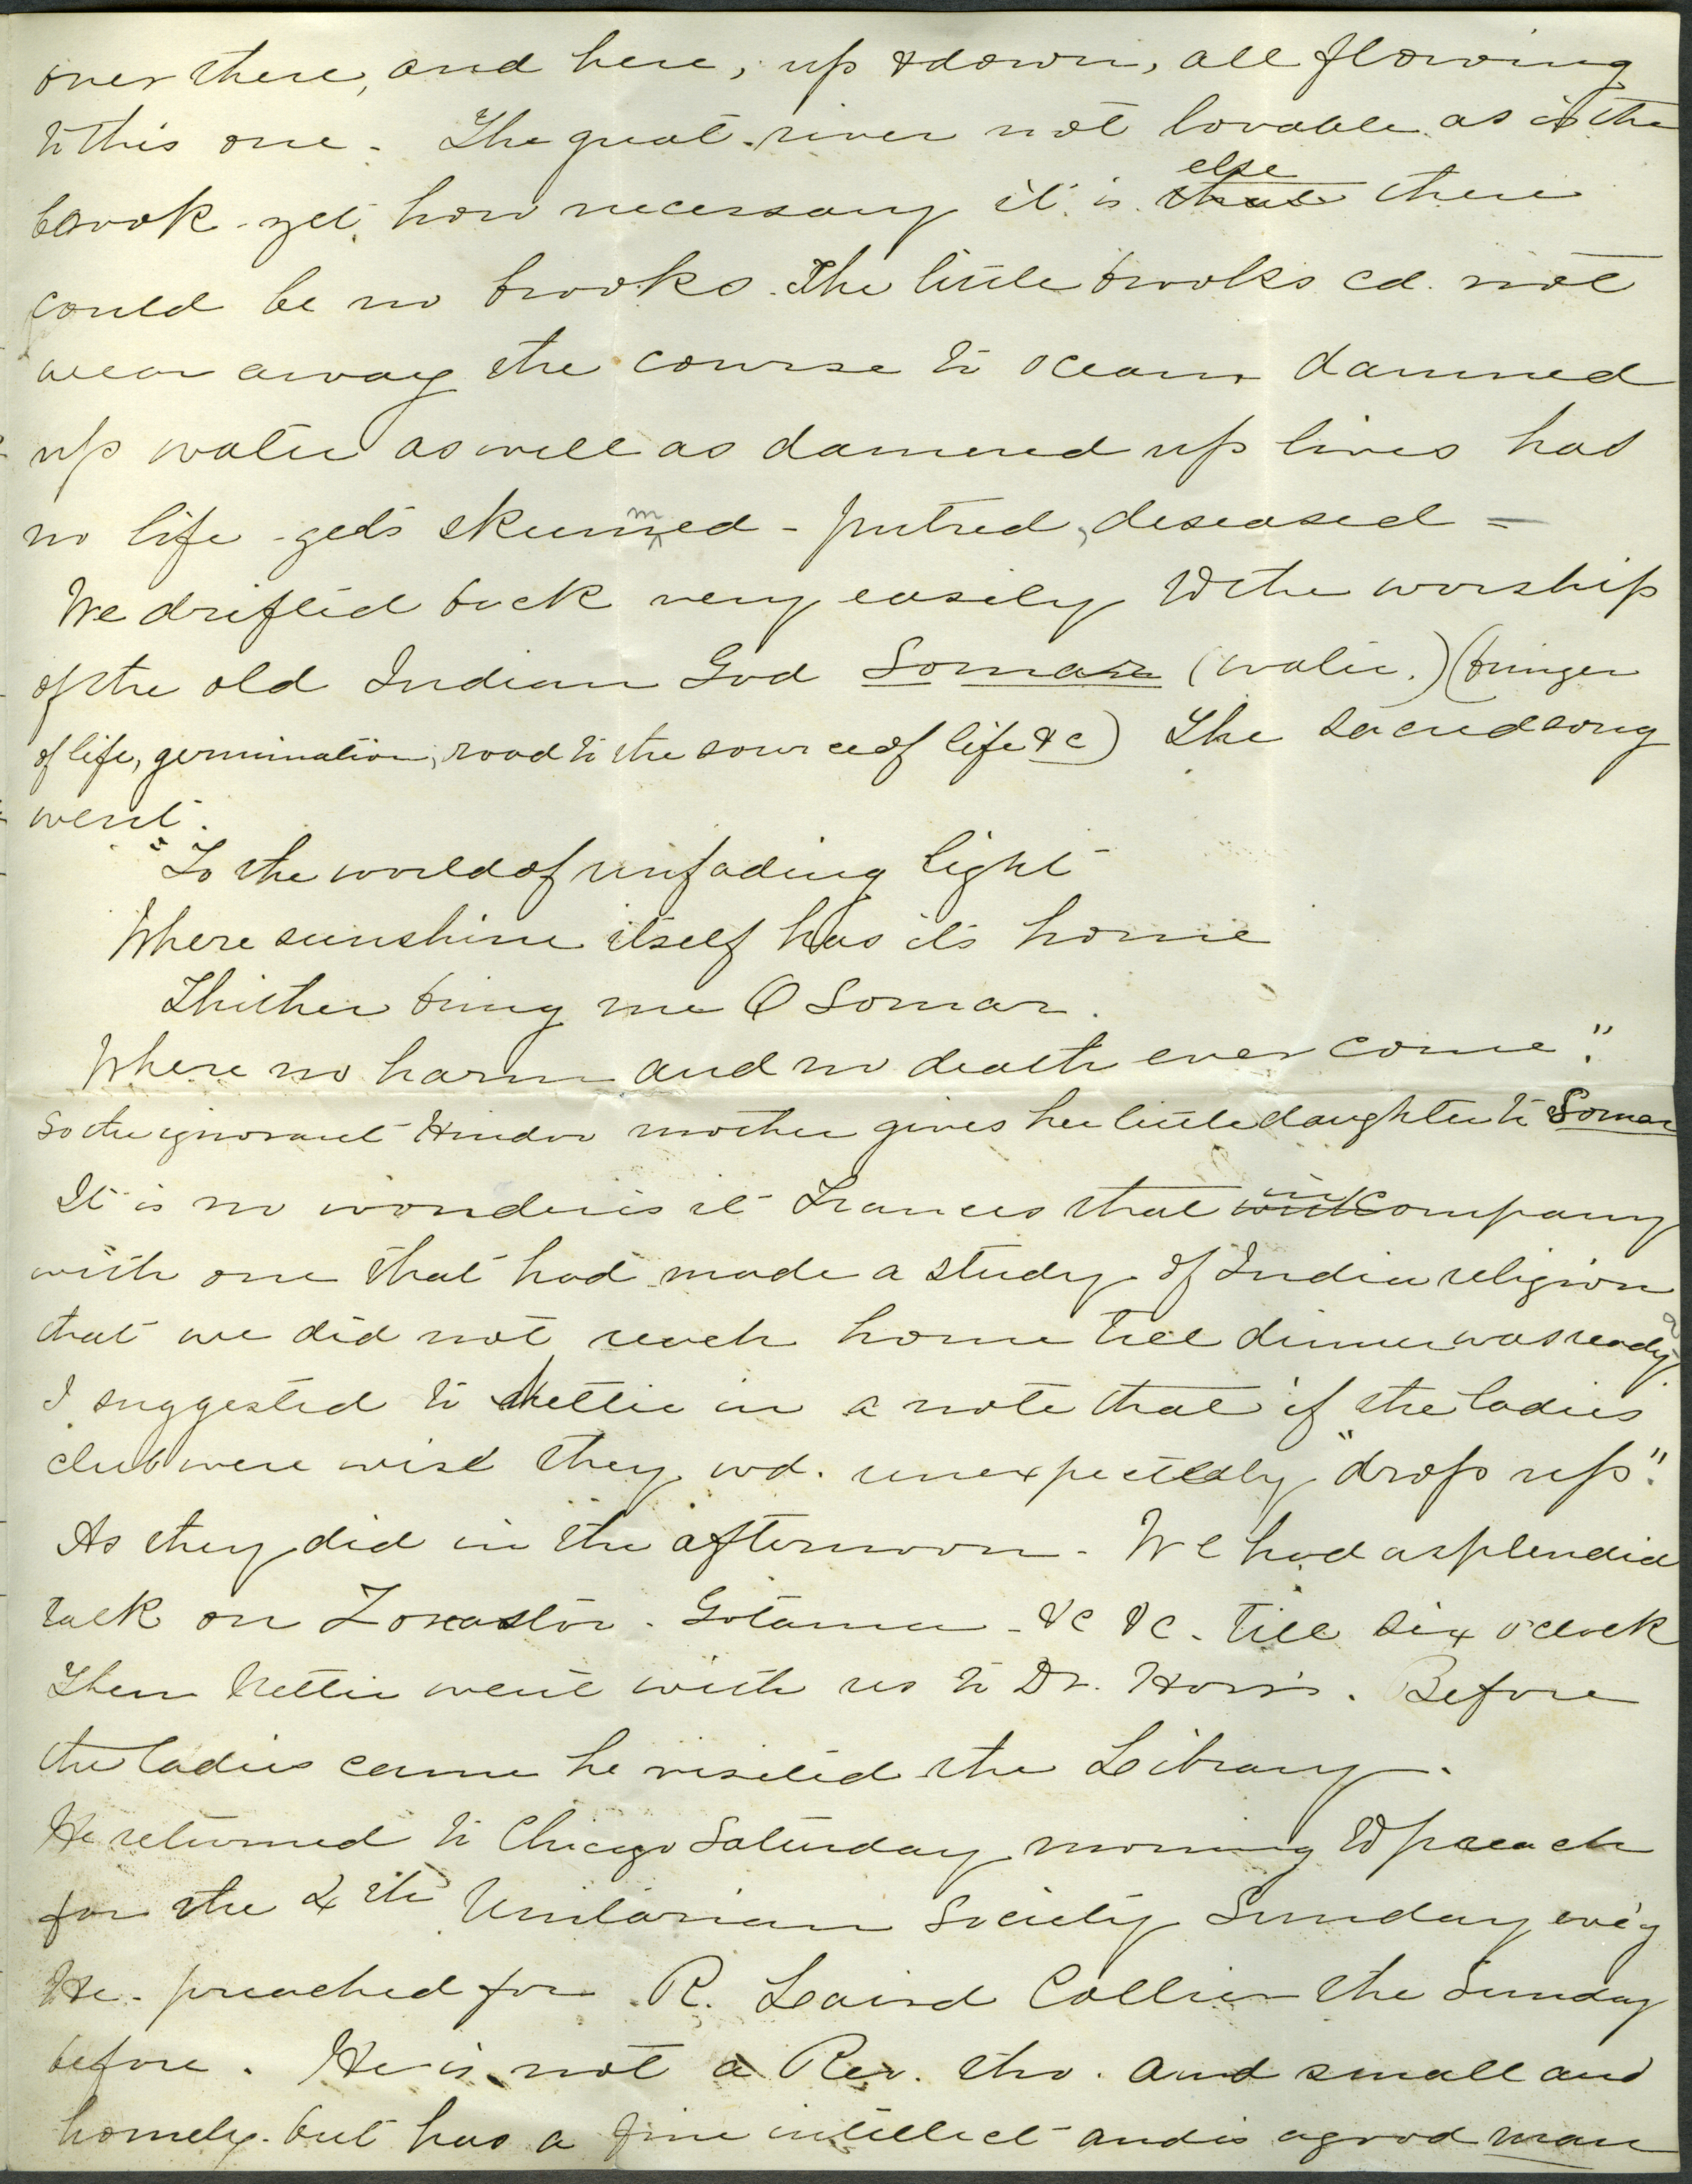 over there, and here, up & down, all flowing
to this one. The great river not lovable as is the
brook yet how necessary it is that else there
could be no brooks. The little brooks cd. not
wear away the course to ocean dammed
up water as well as dammed up lives has
no life gets skummed - putred, deseased =
We drifted back very easily to the worship
of the old Indian God Somar (water.) (bringer
of life, germination, road to the source of life &c) The sacred song
went.
"To the world of unfading light
Where sunshine itself has its home
Thither bring me O Somar.
Where no harm and no death ever come."
So the ignorant Hindoo mother gives her little daughter to Somar
It is no wonder is it Frances that with in company
with one that had made a study of India religion
that we did not reach home till dinner was ready.
I suggested to Nettie in a note that if the ladies
club were wise they wd. unexpectedly "drop up".
As they did in the afternoon. We had a splendid
talk on Zoroastor. Gotama - &c &c. till six o'clock
Then Nettie went with us to Dr. Hoy's. Before
the ladies came he visited the Library.
He returned to Chicago Saturday morning to preach
for the 4th Unitarian Society Sunday eve'g
He preached for R. Laird Collier the Sunday
before. He is not a Rev. tho. and small and
homely. but has a fine intellect and is a good man